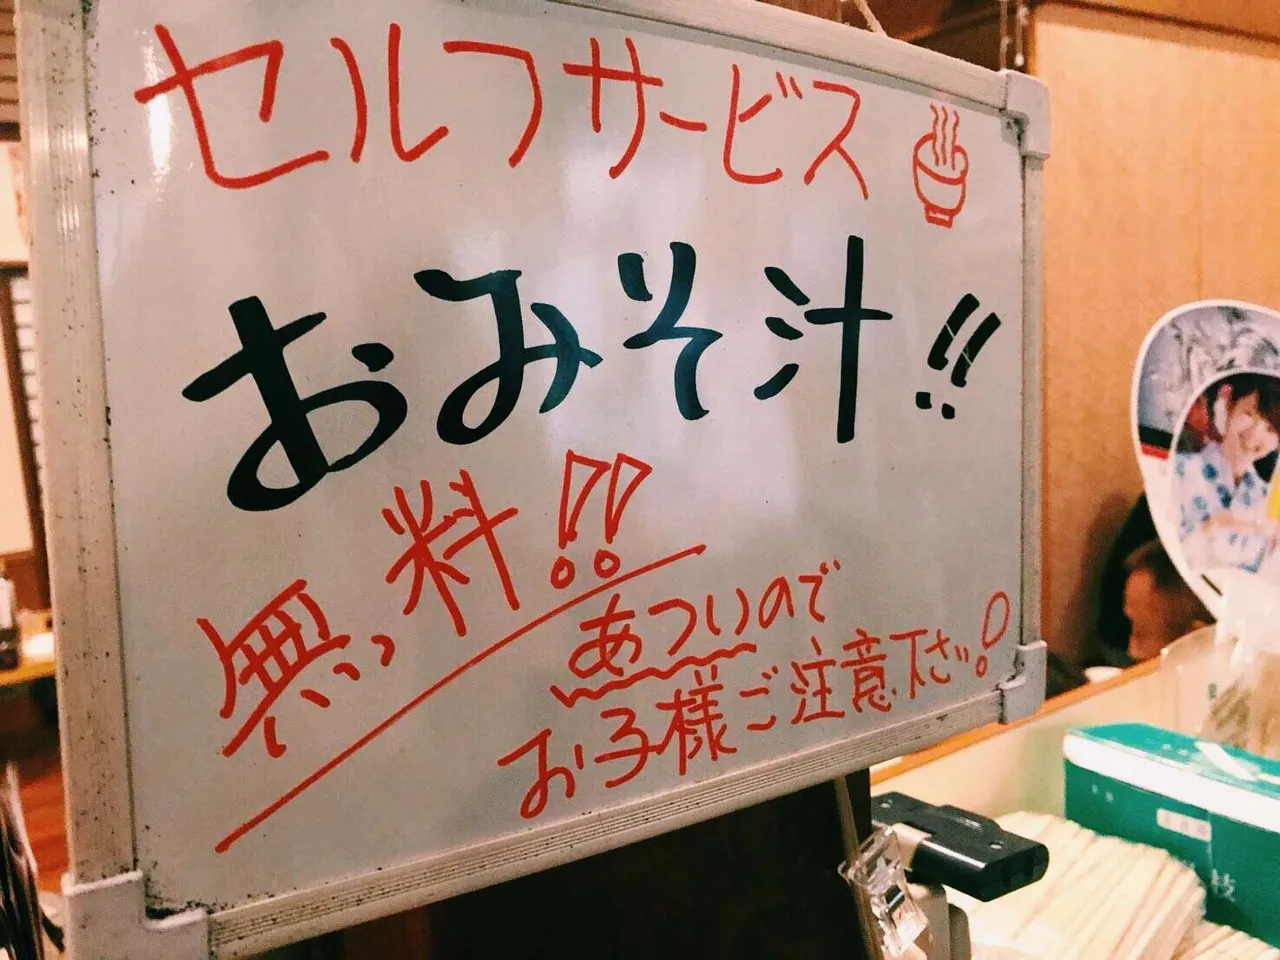 セルフサービス
おみそ汁!!
無料!!
あついので
お子様ご注意下さい!
枝